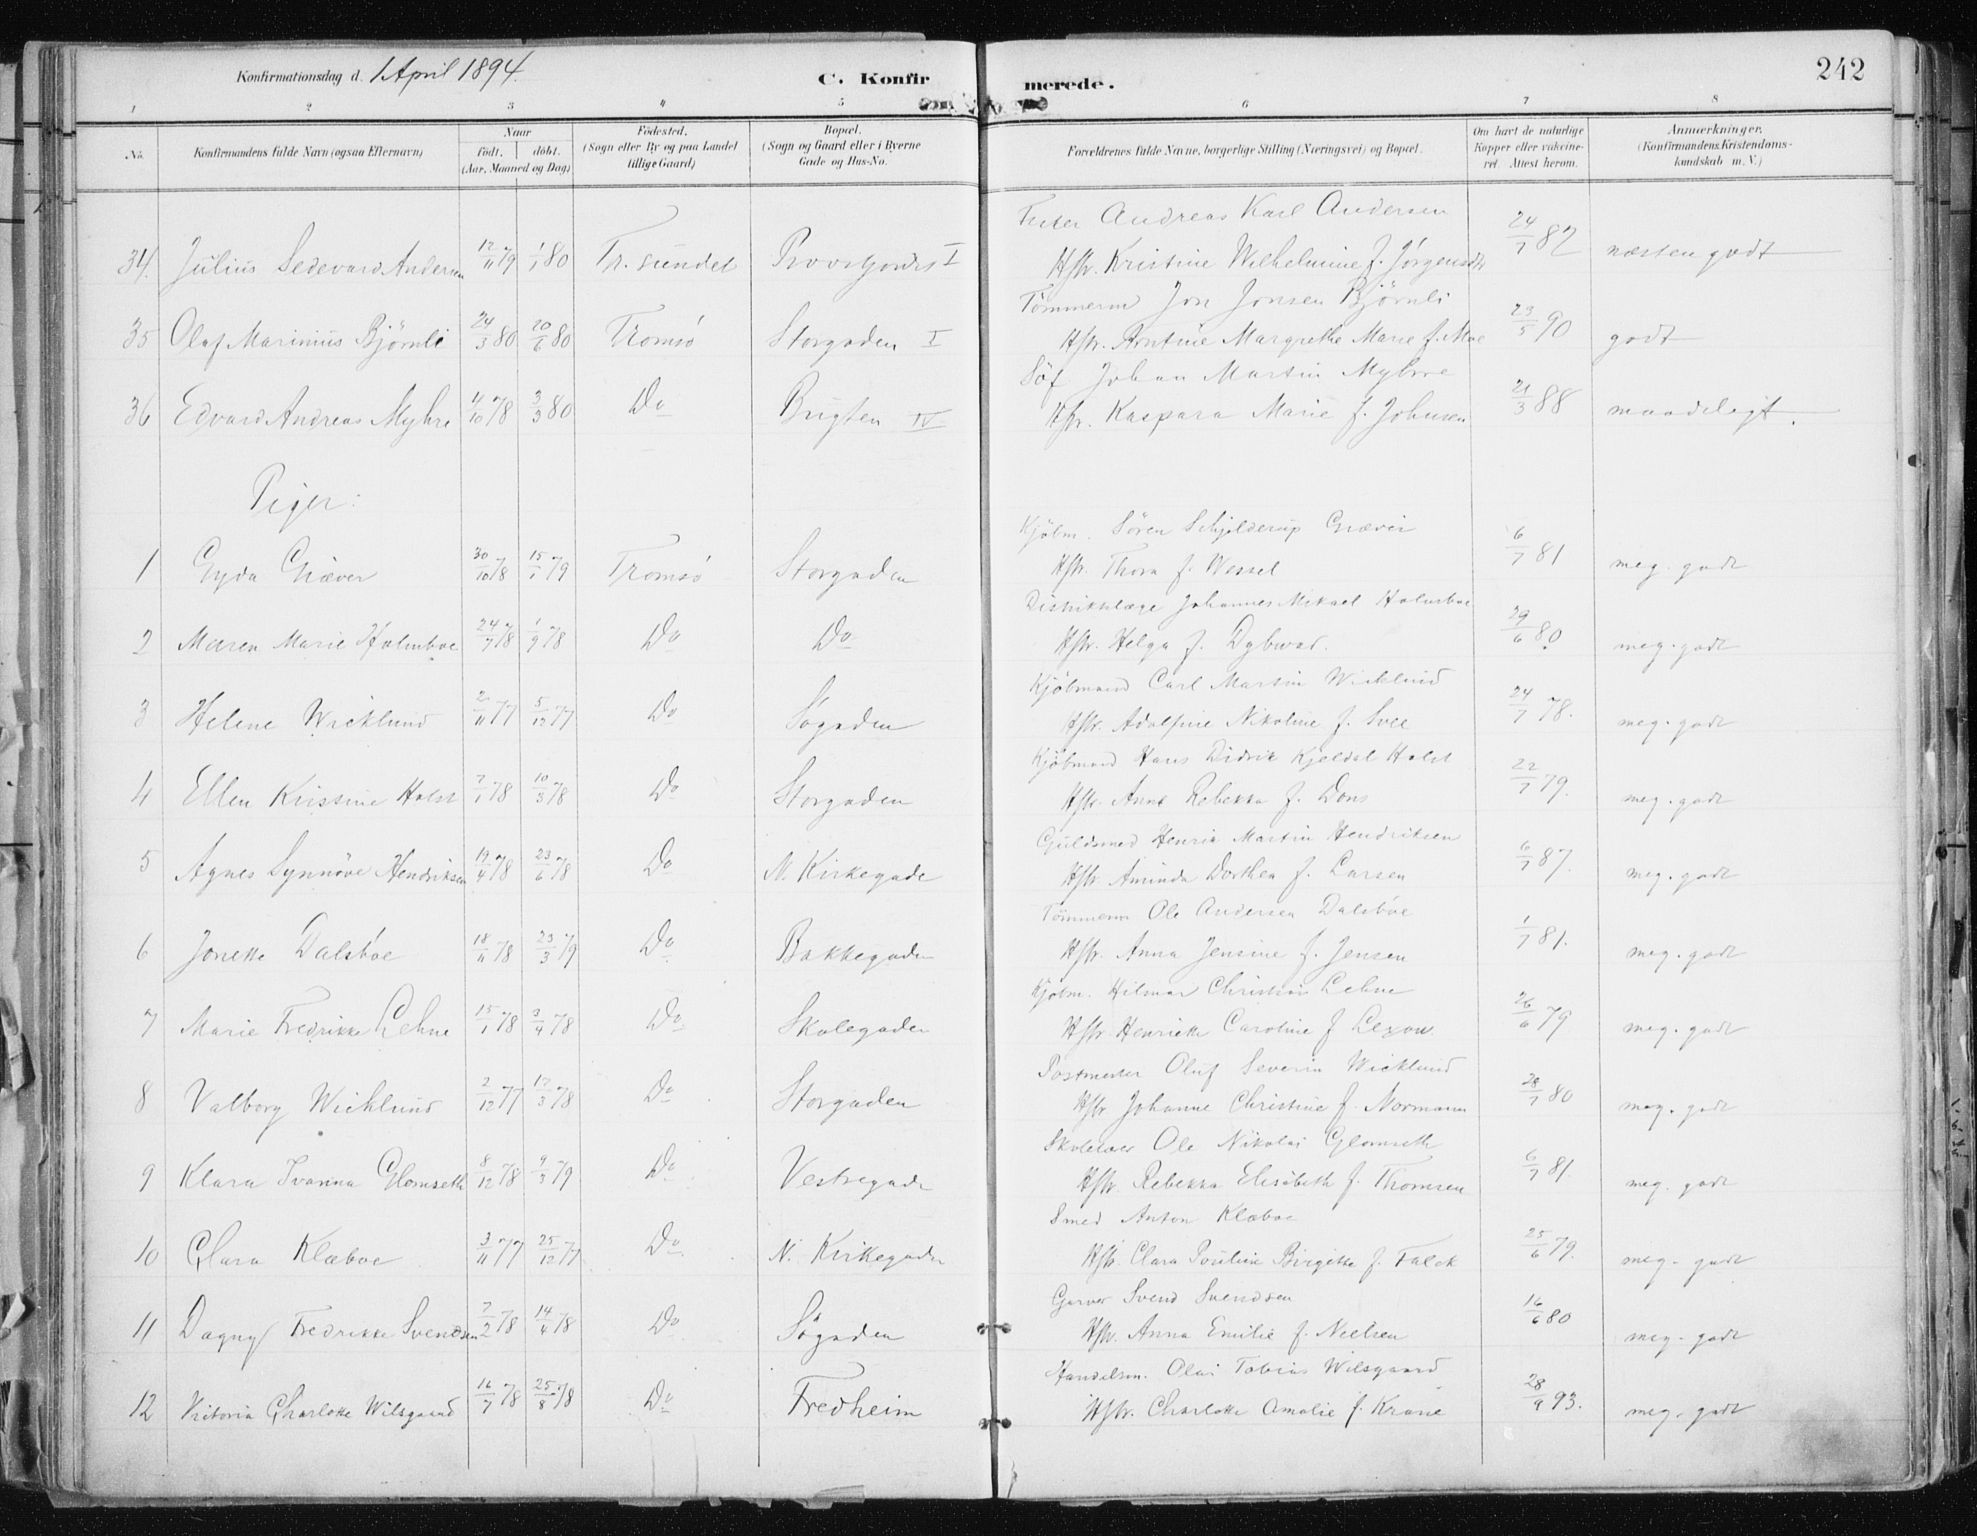 Konfirmationsdag d. 1 April 1894. C. Konfirmerede. 242
1 2 3 4 5 6 7 8
No. Konfirmandens fulde Navn (ogsaa Efternavn) Naar født. døbt. (Aar, Maaned og Dag) Fødested. (Sogn eller By og paa Landet tillige Gaard) Bopæl. (Sogn og Gaard eller i Byerne Gade og Hus-No. Forældrenes fulde Navne, borgerlige Stilling (Næringsvei) og Bopæl. Om havt de naturlige Kopper eller vakcineret. Attest herom. Anmærkninger. (Konfirmandens Kristendomskundskab m. V.)
Andreas Karl Andersen
34. Julius Sedevard Andersen 12/11 79 1/1 80 Tr. sundet I Hstr. Kristine Wilhelmine f. Jörgensdt 24/7 82 næsten godt
Tömmerm Jon Jonsen Björnli
35 Olaf Marinius Björnli 24/3 80 20/6 80 Tromsö Storgaden I Hstr. Arntine Margrethe Marie f. Moe 23/5 90 godt
Söf Johan Martin Myhre
36 Edvard Andreas Myhre 4/10 78 3/3 80 Do Brygten IV Hstr. Kaspara Marie f. Johnsen 21/3 88 maadeligt.
Piger:
Kjöbm. Sören Schjelderup Græver
1 Gyda Græver 30/10 78 15/1 79 Tromsö Storgaden Hstr. Thora f. Wessel 6/7 81 meg. godt
Distriktslæge Johannes Mikael Holmboe
2 Maren Marie Holmboe 24/7 78 1/9 78 Do Do Hstr. Helga f. Dybwad. 29/6 80 meg. godt
Kjöbmand Carl Martin Wicklund
3 Helene Wicklund 2/11 77 5/12 77 Do Sögaden Hstr. Adolfine Nikoline f. 24/7 78. meg. godt
Kjöbmand Hans Didrik Kjeldal Holst
4 Ellen Kristine Holst 7/1 78 10/3 78 Do Storgaden Hstr. Anne Rebekka f. Dons 22/7 79. meg. godt
Guldsmed Henrik Martin Hendriksen
5 Agnes Synnöve Hendriksen 19/4 78 23/6 78 Do N. Kirkegade Hstr. Aminda Dorthea f. Larsen 6/7 87. meg. godt
Tömmerm Ole Andersen Dalsböe
6 Jonette Dalsböe 18/11 78 23/3 79 Do Bakkegaden Hstr. Anna Jensine f. Jensen 1/7 81. meg. godt
Kjöbm. Hilmar Christian Lehne
7 Marie Fredrikke Lehne 15/1 78 3/4 78 Do Skolegaden Hstr Henriette Caroline f 26/6 79 meg. godt
Postmester Oluf Severin Wicklund
8 Valborg Wicklund 2/12 77 17/3 78 Do Storgaden Hstr Johanne Christine f. Normann 28/7 80 meg. godt
Skolelærer Ole Nikolai Glomseth
9 Klara Ivanna Glomseth 8/12 78 9/3 79 Do Vestregade Hstr. Rebekka Elisabeth f. Thomsen 6/7 81. meg. godt
Smed Anton Klæboe
10 Clara Klæboe 3/11 77 25/12 77 Do N. Kirkegaden Hstr. Clara Pouline Birgitte f. Falck 25/6 79. meg. godt
Garver Svend Svendsen
11 Dagny Fredrikke Svendsen 7/2 78 14/4 78 Do Sögaden Hstr. Anna Emilie f. Nielsen 16/6 80 meg. godt
Handelsm. Olai Tobias Wilsgaard
12 Victoria Charlotte Wilsgaard 16/7 78 25/8 78 Do Fredheim Hstr. Charlotte Amalie f. Krane 28/9 93. meg. godt